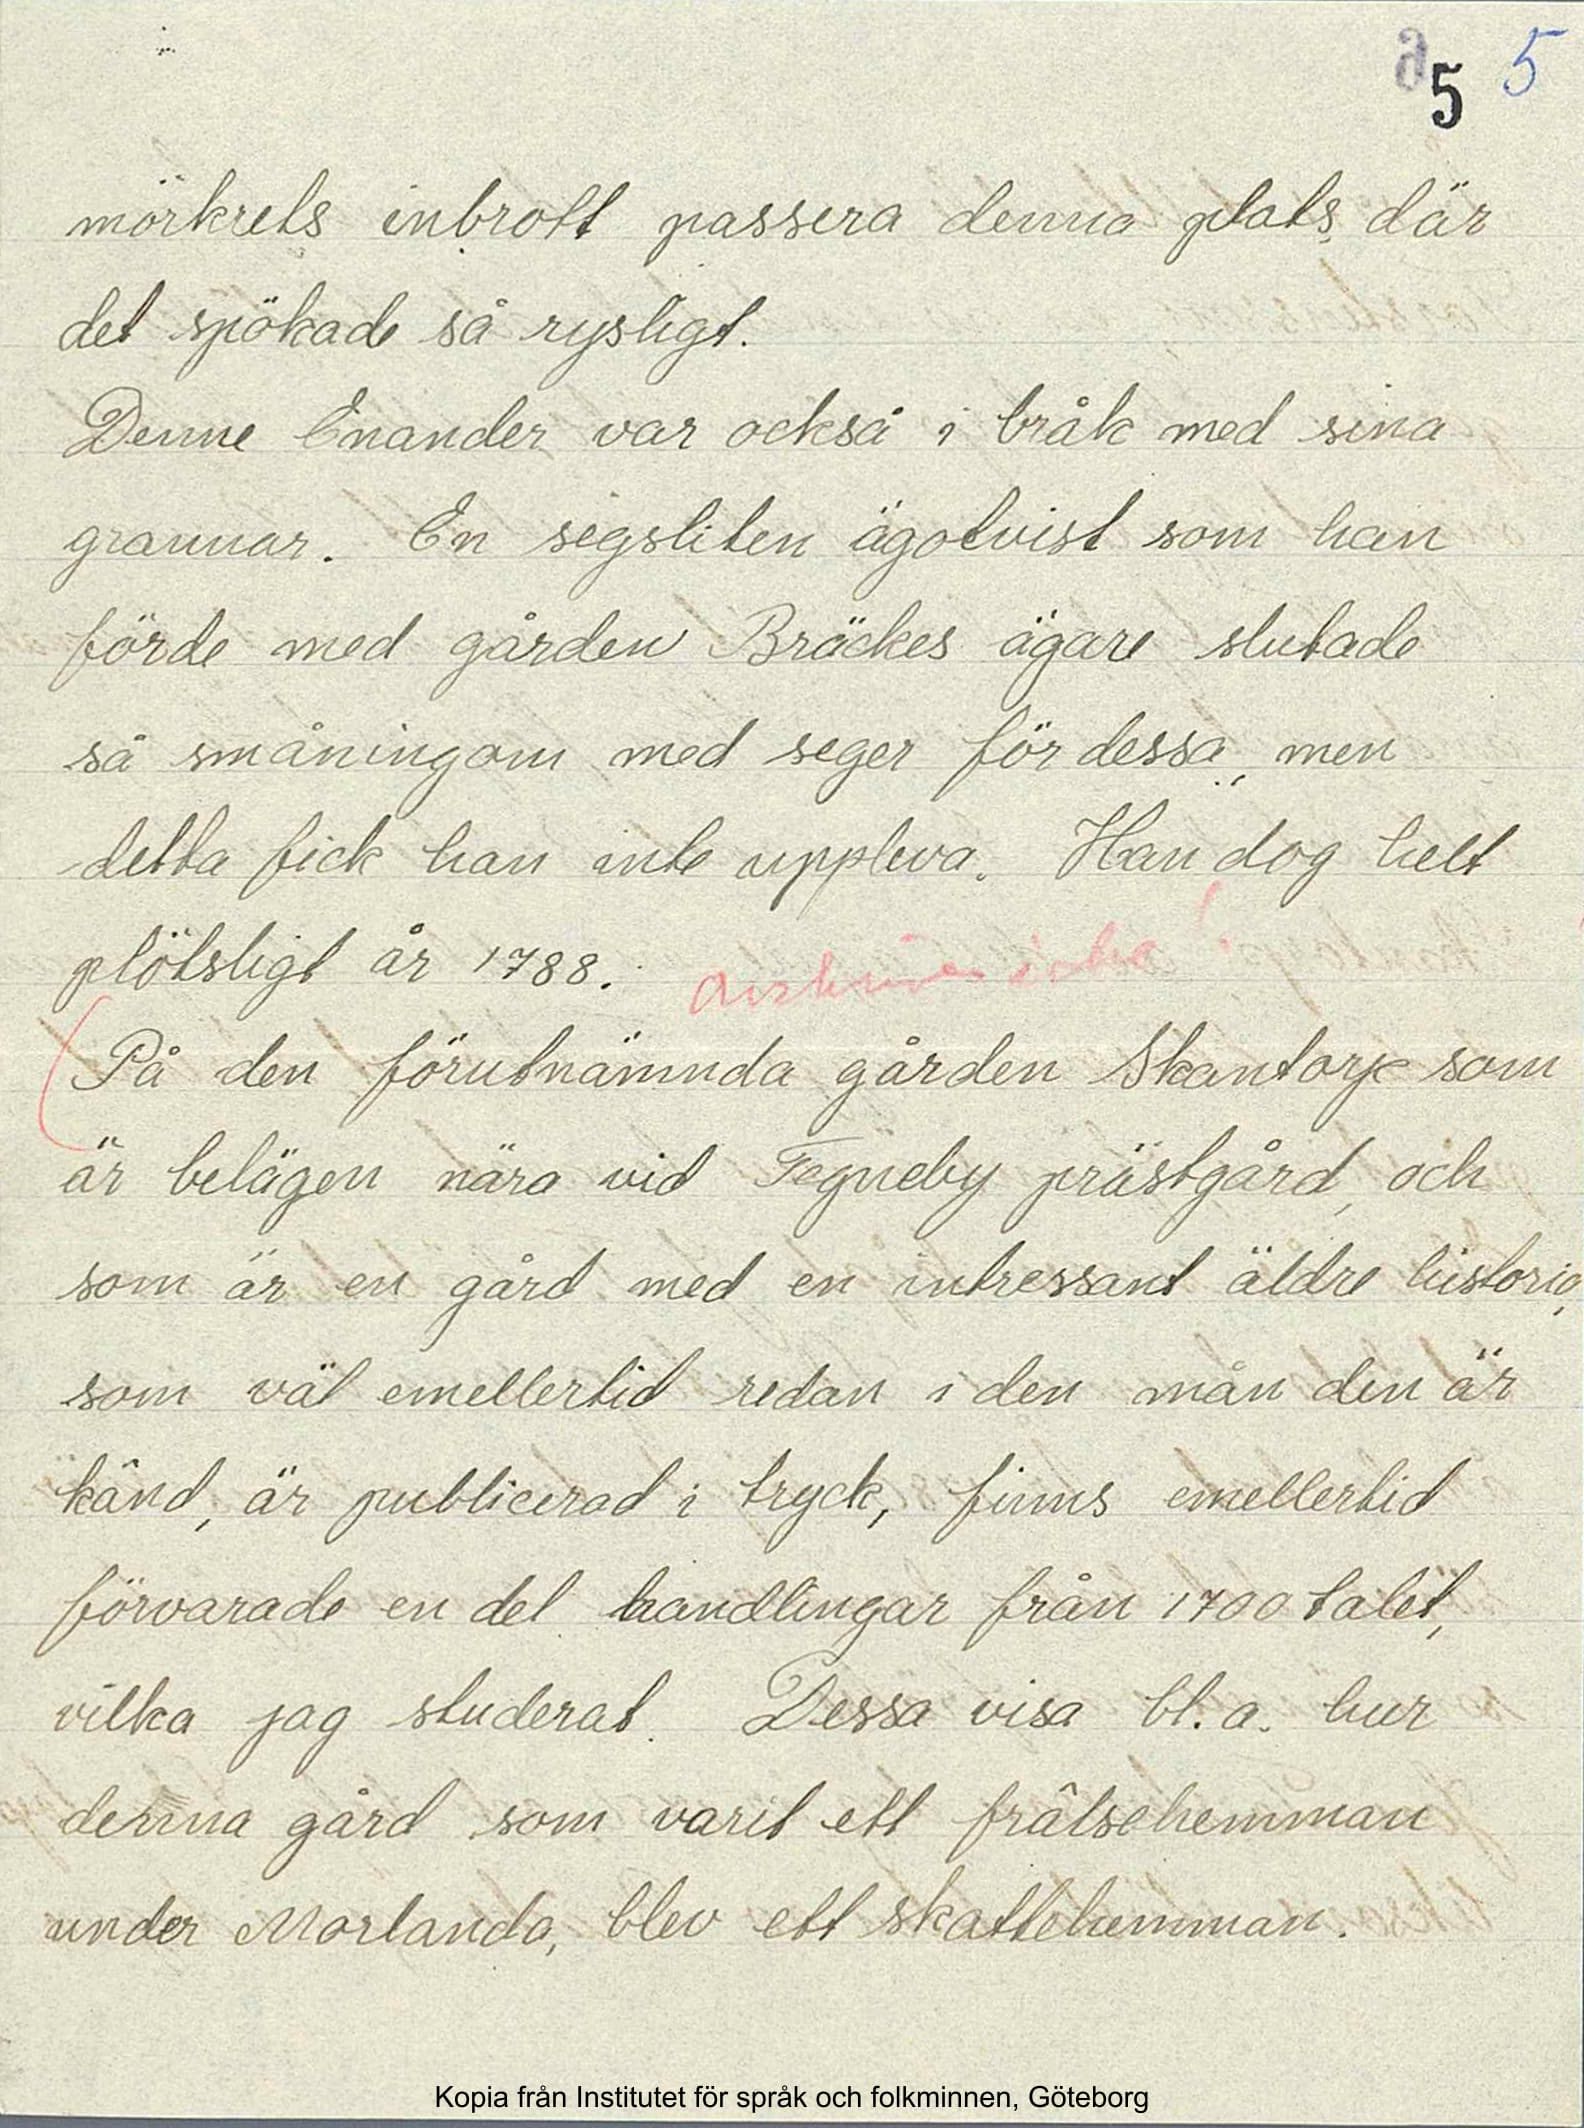 5 5
mörkrets inbrott passera denna plats, där
det spökade så rysligt.
Denne Enander var också i bråk med sina
grannar. En segsliten ägotvist som han
förde med gården Bräckes ägare slutade
så småningom med seger för dessa, men
detta fick han inte uppleva. Han dog helt
plötsligt år 1788.
Avskrives icke!
På den förutnämnda gården Skantorp som
är belägen nära vid Tegneby prästgård, och
som är en gård med en intressant äldre historia,
som väl emellertid redan i den mån den är
känd, är publicerad i tryck, finns emellertid
förvarade en del handlingar från 1700 talet,
vilka jag studerat. Dessa visa bl.a. hur
denna gård som varit ett frälsehemman
under Morlanda, blev ett skattehemman.
Kopia från Institutet för språk och folkminnen, Göteborg